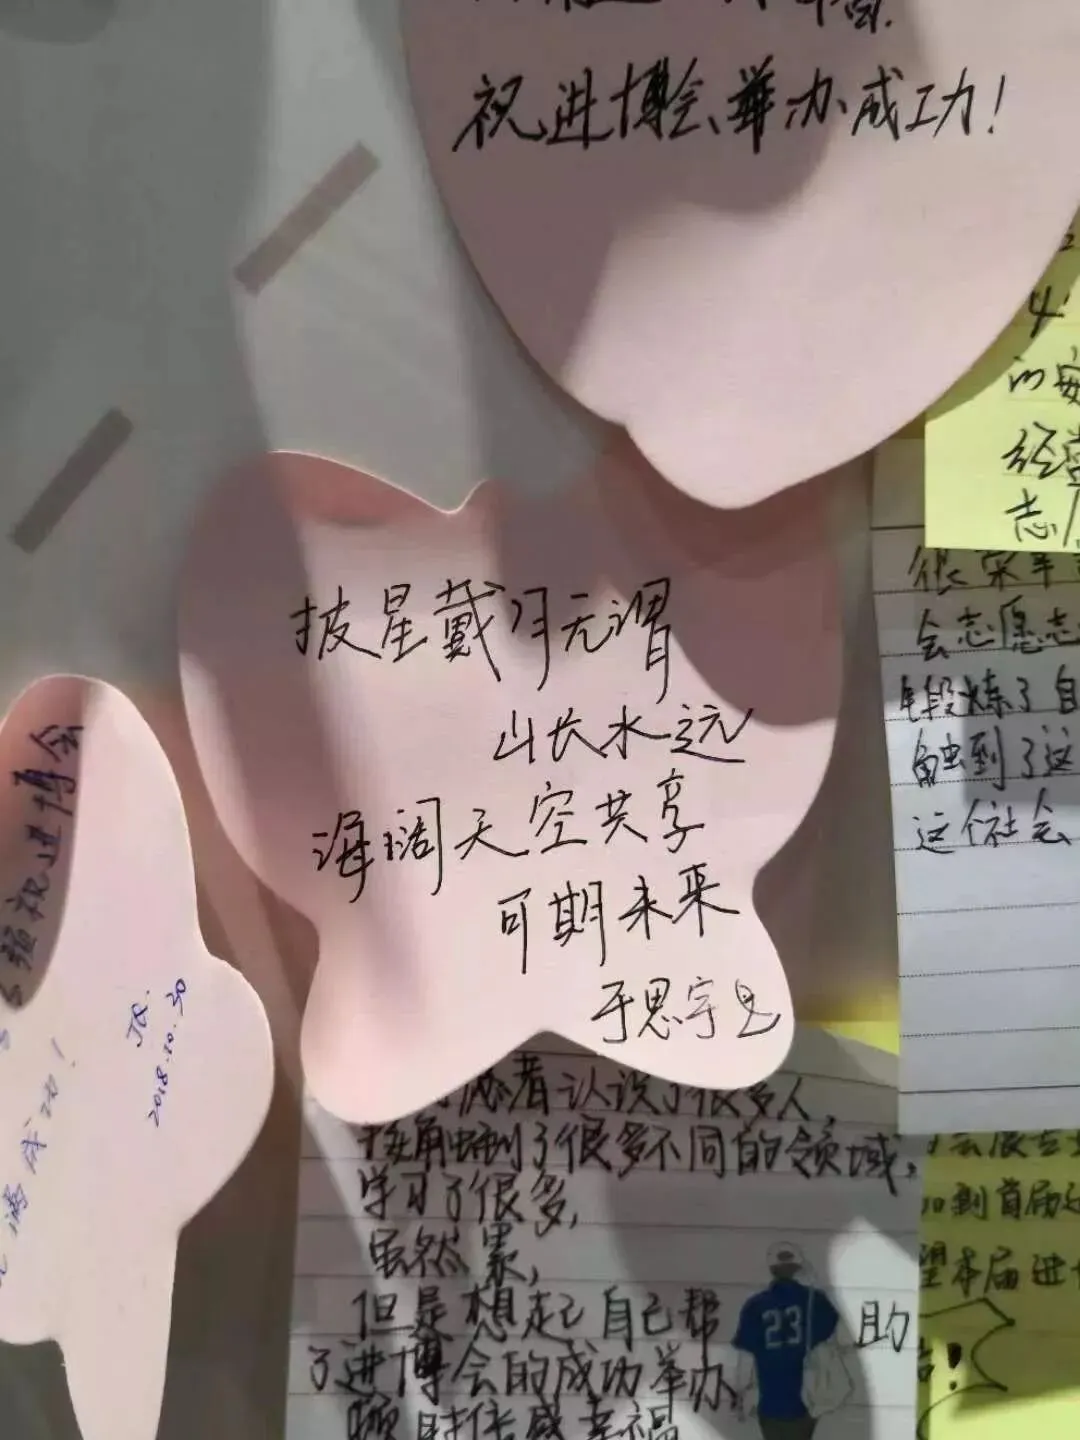 祝进博会举办成功！
披星戴月无谓
山长水远
海阔天空共享
可期未来
于思宇
预祝进博会
圆满成功！
JQ.
2018.10.30
4.
的安
经营
志
很荣幸
会志愿志
锻炼了自
触到了这
这个社会
愿者认识了很多人，
接触到了很多不同的领域，
学习了很多，
虽然累，
但是想起自己帮助
了进博会的成功举办，
顿时倍感幸福
会展
加到首届进
望本届进
23